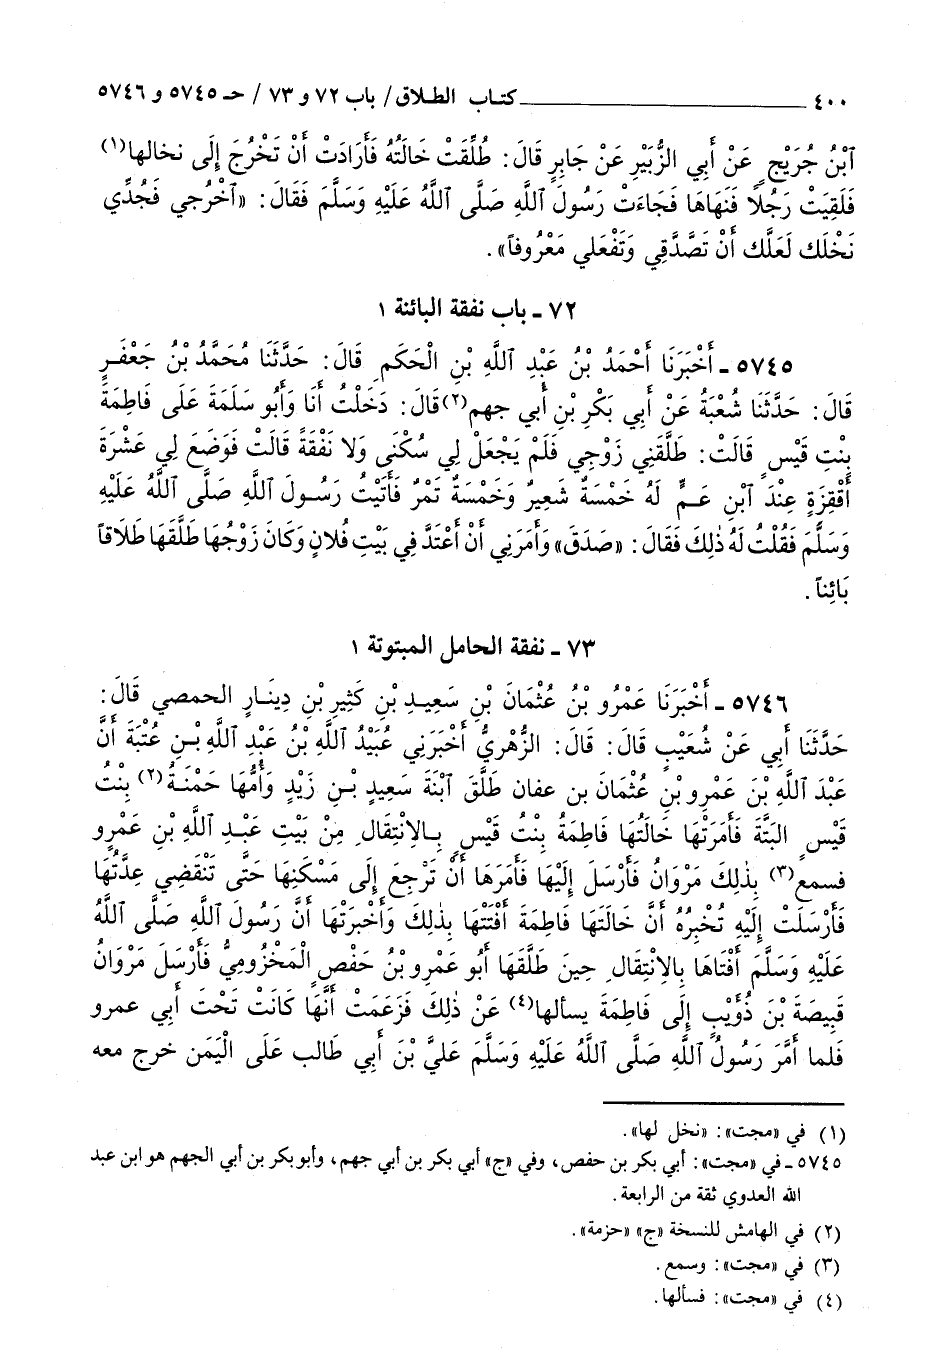 ٤٠٠ ــــــــــــــــــــــــ كتـاب الطـلاق/ باب ٧٢ و ٧٣ / حـ ٥٧٤٥ و ٥٧٤٦
ٱبْنُ جُرَيْجٍ عَنْ أَبِي الزُّبَيْرِ عَنْ جَابِرٍ قَالَ: طُلِّقَتْ خَالَتُهُ فَأَرَادَتْ أَنْ تَخْرُجَ إِلَى نخالها(١)
فَلَقِيَتْ رَجُلًا فَنَهَاهَا فَجَاءَتْ رَسُولَ اللَّهِ صَلَّى اللَّهُ عَلَيْهِ وَسَلَّمَ فَقَالَ: «ٱخْرُجي فَجُدِّي
نَخْلَكِ لَعَلَّكِ أَنْ تَصَّدَّقِي وَتَفْعَلي مَعْرُوفاً».
٧٢ ـ باب نفقة البائنة ١
٥٧٤٥ ـ أَخْبَرَنَا أَحْمَدُ بْنُ عَبْدِ ٱللَّهِ بْنِ الْحَكَمِ قَالَ: حَدَّثَنَا مُحَمَّدُ بْنُ جَعْفَـرٍ
قَالَ: حَدَّثَنَا شُعْبَةُ عَنْ أَبِي بَكْرِ بْنِ أَبي جهم(٢) قَالَ: دَخَلْتُ أَنَا وَأَبُو سَلَمَةَ عَلَى فَاطِمَةَ
بِنْتِ قَيْسٍ قَالَتْ: طَلَّقَنِي زَوْجِي فَلَمْ يَجْعَلْ لِي سُكْنَى وَلَا نَفَقَةً قَالَتْ فَوَضَعَ لِي عَشْرَةَ
أَقْفِزَةٍ عِنْدَ ٱبْنِ عَـمٍّ لَهُ خَمْسَةٌ شَعِيرٌ وَخَمْسَةٌ تَمْرٌ فَأَتَيْتُ رَسُـولَ ٱللَّهِ صَلَّى ٱللَّهُ عَلَيْهِ
وَسَلَّمَ فَقُلْتُ لَهُ ذٰلِكَ فَقَالَ: «صَدَقَ» وَأَمَرَنِي أَنْ أَعْتَدَّ فِي بَيْتِ فُلَانٍ وَكَانَ زَوْجُهَا طَلَّقَهَا طَلَاقاً
بَائِناً.
٧٣ ـ نفقة الحامل المبتوتة ١
٥٧٤٦ ـ أَخْبَرَنَا عَمْرُو بْنُ عُثْمَانَ بْنِ سَعِيـدِ بْنِ كَثِيرِ بْنِ دِينَـارٍ الحمصي قَالَ:
حَدَّثَنَا أَبِي عَنْ شُعَيْبٍ قَالَ: قَالَ: الزُّهْرِيُّ أَخْبَرَنِي عُبَيْدُ ٱللَّهِ بْنُ عَبْدِ ٱللَّهِ بْـنِ عُتْبَةَ أَنَّ
عَبْدَ ٱللَّهِ بْنَ عَمْرِو بْنِ عُثْمَانَ بن عفان طَلَّقَ ٱبْنَةَ سَعِيدِ بْـنِ زَيْدٍ وَأُمُّهَا حَمْنَـةُ(٢) بِنْتُ
قَيْسٍ البَتَّةَ فَأَمَرَتْهَا خَالَتُهَا فَاطِمَةُ بِنْتُ قَيْسٍ بِـالْانْتِقَالِ مِنْ بَيْتِ عَبْـدِ اللَّهِ بْنِ عَمْرٍو
فسمع(٣) بِذٰلِكَ مَرْوَانُ فَأَرْسَلَ إِلَيْهَا فَأَمَرَهَا أَنْ تَرْجِعَ إِلَى مَسْكَنِهَا حَتَّى تَنْقَضِي عِدَّتُهَا
فَأَرْسَلَتْ إِلَيْهِ تُخْبِرُهُ أَنَّ خَالَتَهَا فَاطِمَةَ أَفْتَتْهَا بِذٰلِكَ وَأَخْبَرَتْهَا أَنَّ رَسُولَ ٱللَّهِ صَلَّى ٱللَّهُ
عَلَيْهِ وَسَلَّمَ أَفْتَاهَا بِالْانْتِقَالِ حِينَ طَلَّقَهَا أَبُو عَمْرِو بْنُ حَفْصٍ الْمَخْزُومِيُّ فَأَرْسَلَ مَرْوَانُ
قَبِيصَةَ بْنَ ذُؤَيْبٍ إِلَى فَاطِمَةَ يسألها(٤) عَنْ ذٰلِكَ فَزَعَمَتْ أَنَّهَا كَانَتْ تَحْتَ أَبِي عمرو
فَلما أَمَّرَ رَسُولُ ٱللَّهِ صَلَّى ٱللَّهُ عَلَيْهِ وَسَلَّمَ عَلِيَّ بْنَ أَبِي طَالب عَلَى الْيَمَنِ خرج معه
(١) في «مجت»: «نخل لها».
٥٧٤٥ ـ في «مجت»: أبي بكر بن حفص، وفي «ج» أبي بكر بن أبي جهم، وأبو بكر بن أبي الجهم هو ابن عبد
الله العدوي ثقة من الرابعة.
(٢) في الهامش للنسخة «ج» «حزمة».
(٣) في «مجت»: وسمع.
(٤) في «مجت»: فسألها.